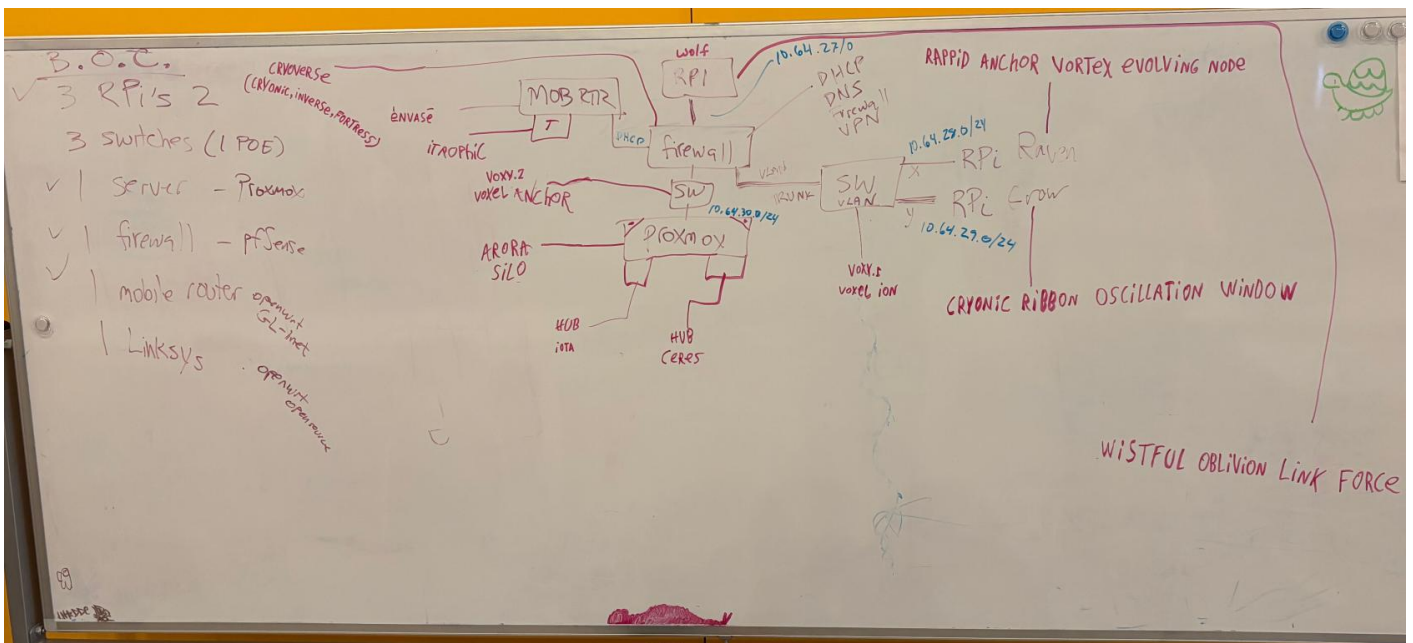 B.O.C.
3 RPi's 2
3 switches (1 POE)
1 server - Proxmox
1 firewall - pfSense
1 mobile router openwrt
GL-inet
1 Linksys openwrt
CRYOVERSE
(CRYONIC, INVERSE, FORTRESS)
ENVASE
iTROPHiC
MOB RTR
T
DHCP
wolf
RPI
10.64.27/0
firewall
DHCP
DNS
firewall
VPN
VOXY.2
VOXEL ANCHOR
SW
10.64.30.0/24
PROXMOX
ARORA
SiLO
HUB
iOTA
HUB
CERES
VLAN
TRUNK
SW
VLAN
VOXEL iON
10.64.28.0/24
X
RPi Raven
Y
RPi Crow
10.64.29.0/24
RAPPiD ANCHOR VORTEX EVOLVING NODE
CRYONIC RiBBON OSCiLLATION WiNDOW
WiSTFUL OBLiViON LiNK FORCE